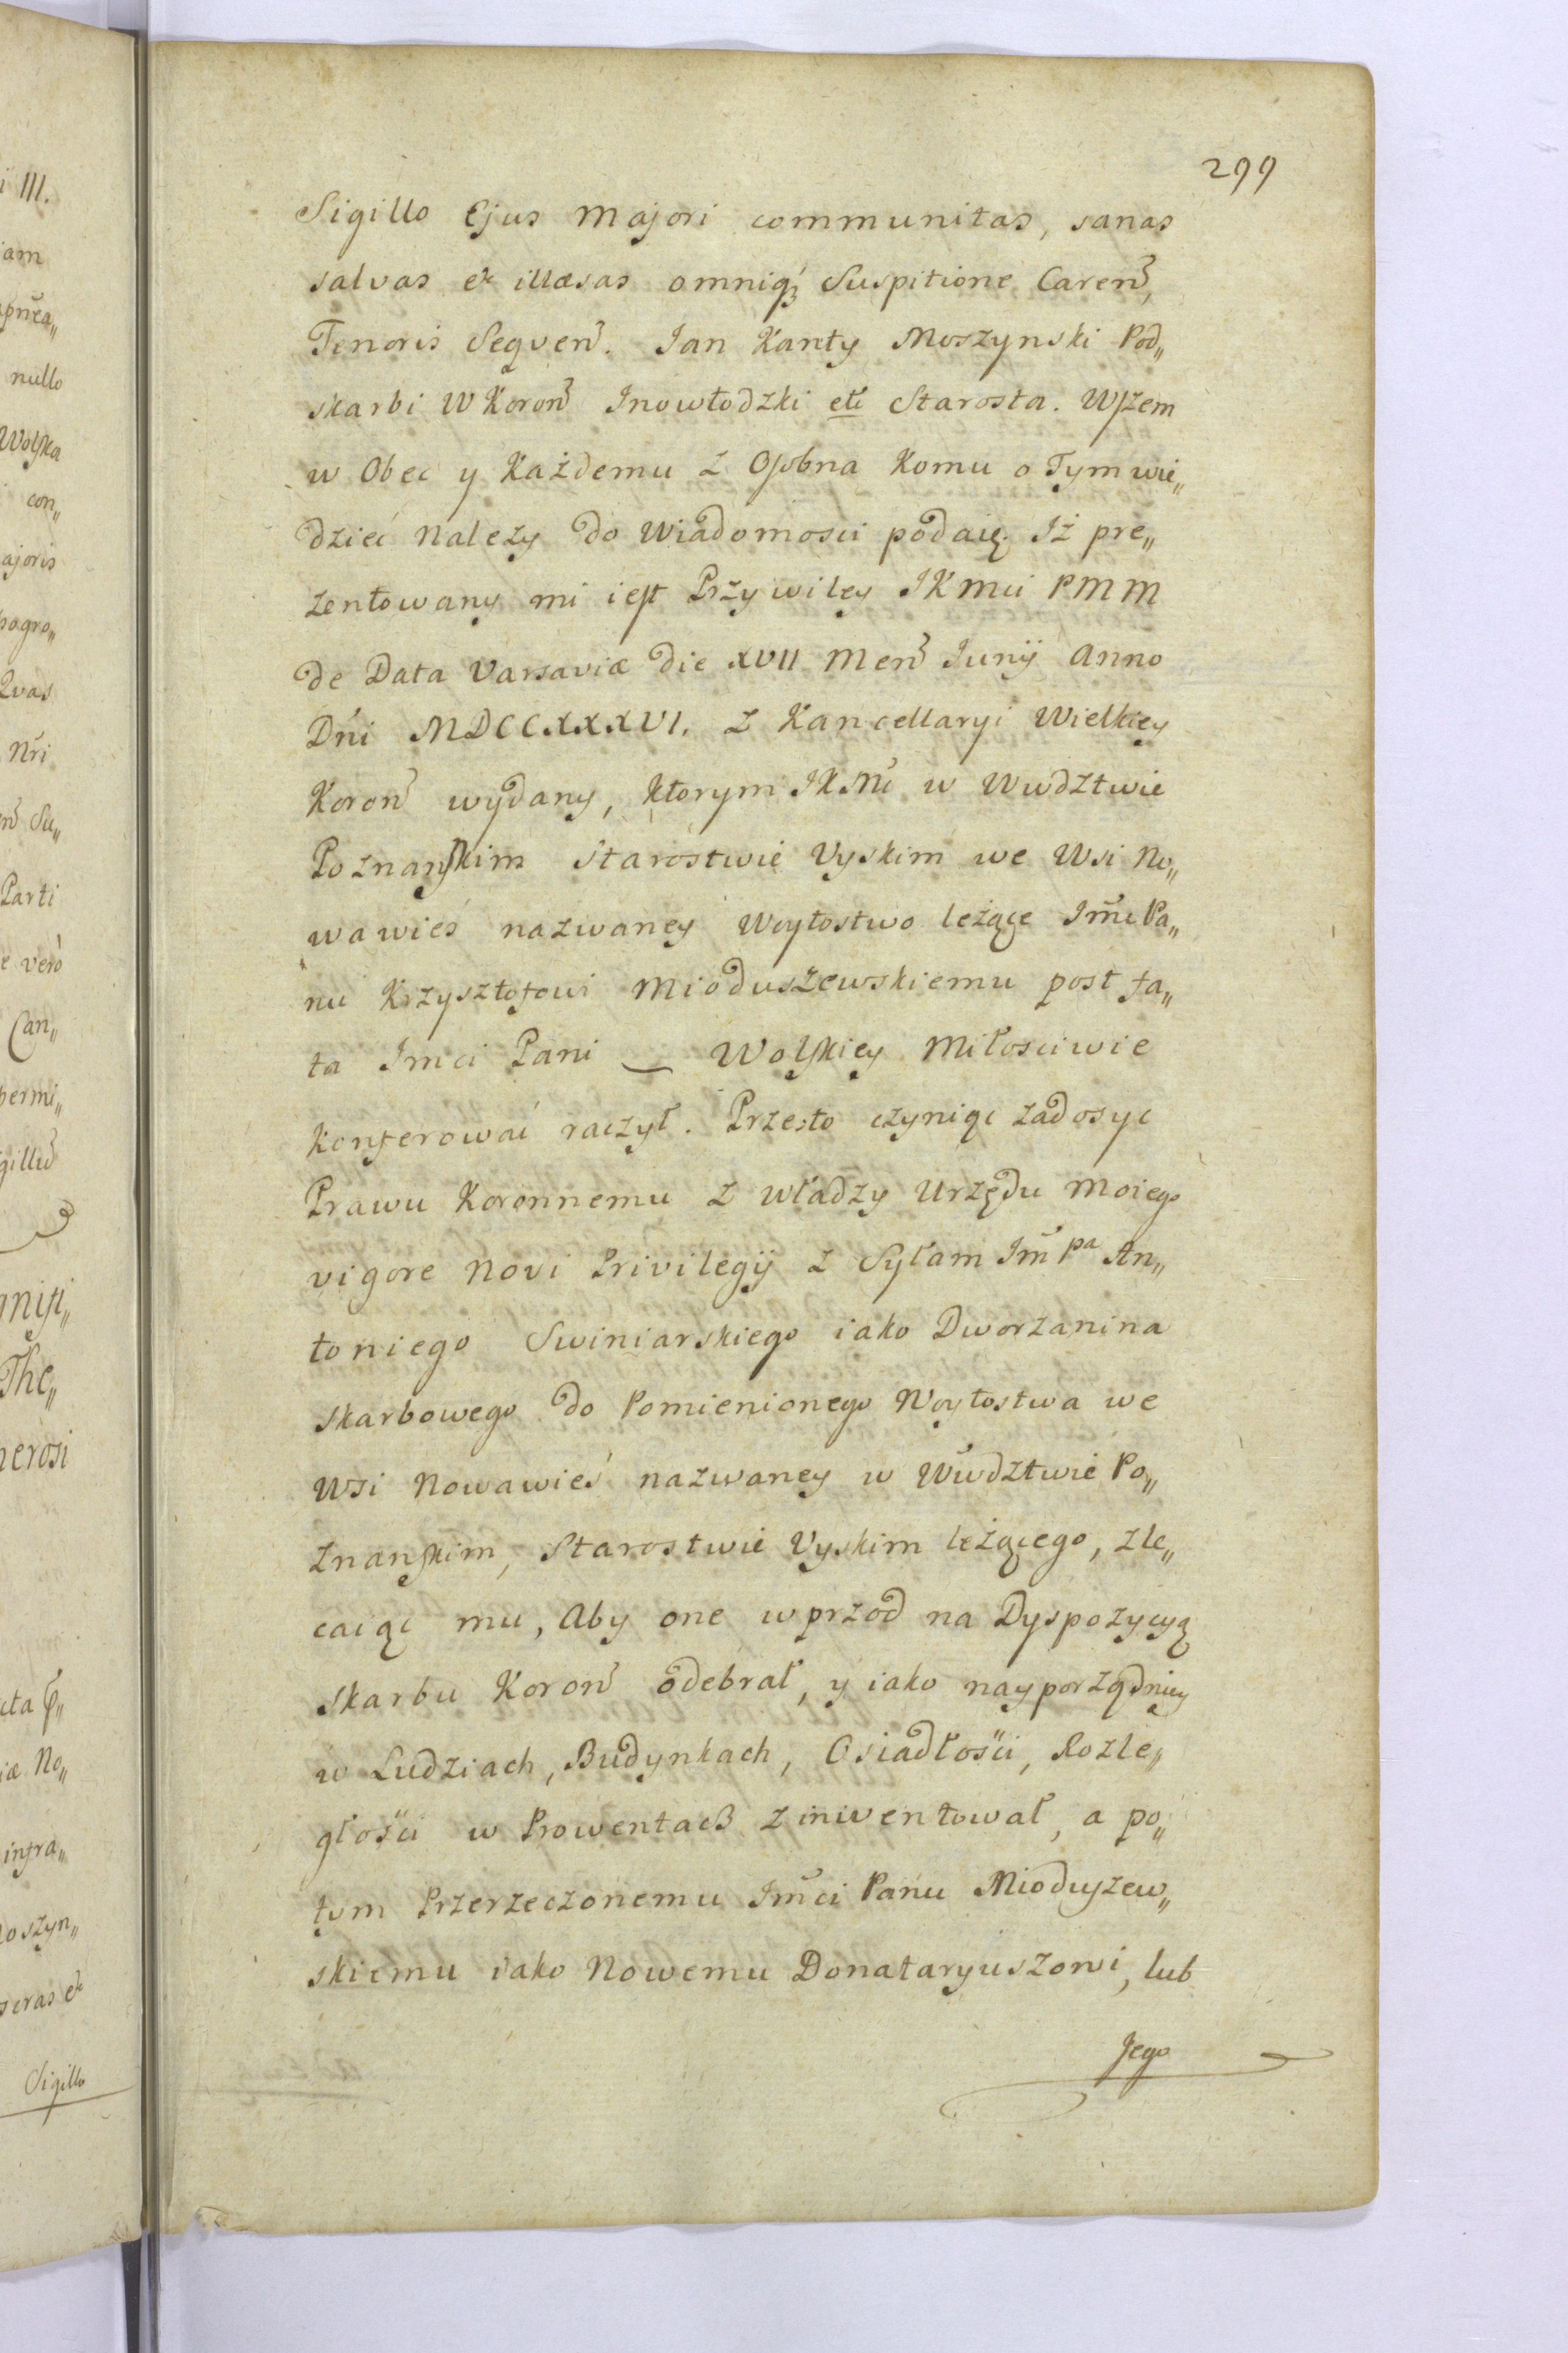 i III.
iam
nullo
Wolska
con„
ajoris
pagro„
Quas
Nri
Su„
Parti
e verò
Can„
permi„
The„
nerosi
iæ No„
infra„
oszyn„
Sigillo
299
Sigillo Ejus Majori communitas, sanas
salvas et illæsas omniq; Suspitione Caren̄,
Tenoris Seqven̄. Jan Kanty Moszynski Pod„
skarbi W Koron̄ Inowłodzki etc Starosta. Wszem
w Obec y Każdemu z Osobna Komu o Tym wie„
dzieć Nalezy do Wiadomosci podaię. Iż pre„
zentowany mi iest Przywiley JKMci PMM
de Data Varsaviæ die XVII Men̄ Junÿ Anno
Dńi MDCCXXXVI. z Kancellaryi Wielkiey
Koron̄ wydany, ktorym JKMć w Wwdztwie
Poznanskim Starostwie Uyskim we Wsi No„
wawieś nazwaney Woytostwo leżące Jm̃ci Pa„
nu Krzysztofowi Mioduszewskiemu post fa„
ta Imci Pani — Wolskiey Miłosciwie
konferować raczył. Przeto czyniąc zadosyc
Prawu Koronnemu z władzy Urzędu Moiego
vigore Novi Privilegÿ z Syłam Jm̃ Pa An„
toniego Swiniarskiego iako Dworzanina
skarbowego do Pomienionego Woytostwa we
Wsi Nowawieś nazwaney w Wwdztwie Po„
znanskim, Starostwie Uyskim leżącego, zle„
caiąc mu, Aby one wprzod na Dyspozycyą
skarbu Koron̄ odebrał, y iako nayporządniey
w Ludziach, Budynkach, Osiadłości, Rozle„
głości w Prowentach zinwentował, a po„
tym Przerzeczonemu Jm̃ci Panu Mioduszew„
skiemu iako Nowemu Donataryuszowi, lub
Jego